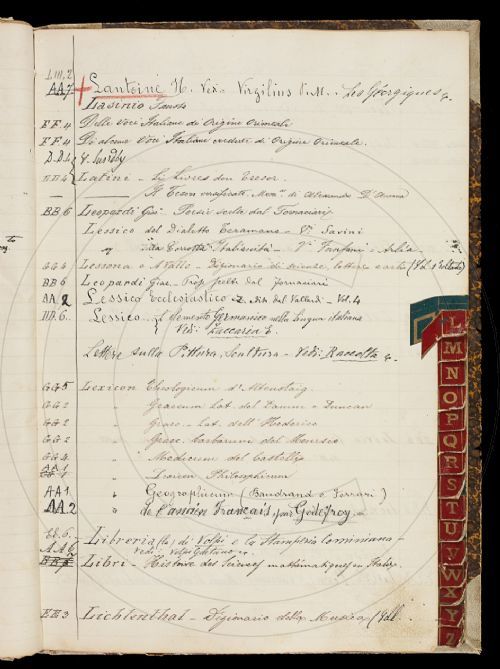 LIII.2
AA7 + Lantoine H. Vedi Virgilius P.M. - Les Géorgiques &.
Lasinio
FF.4 Delle Voci Italiane di Origine Orientale
FF.4 Di alcune Voci Italiane credute di Origine Orientale.
D.D.4
DD4 Latini - Li Livres dou Tresor
— Il Tesoro versificato, Mem. di Alessandro D'Ancona
BB6 Leopardi Giac. Poesie scelte dal Fornaciari
Lessico del Dialetto Teramano - Vi Savini
" della Corrotta Italianità - Vi Fanfani e Arlia
GG4 Lessona e A Valle - Dizionario di scienze, lettere e arti
BB6 Leopardi Giac. - Prose scelte dal Fornaciari
AA.2 Lessico Ecclesiastico - Vol. 4
DD.6. Lessico - L'elemento Germanico nella lingua italiana
Vedi: Zaccaria E.
Lettere sulla Pittura, Scultura - Vedi: Raccolta &.
GG5 Lexicon Theologicum d'Altenstaig.
GG2 " Graecum Lat. del Damm e Duncan
GG2 " Graeco-Lat. dell'Hederico
GG2 " Graec. barbarum del Meursio
GG4 " Medicum del Castelli
AA1 " Lexicon Philosophicum
AA1. " Geographicum (Baudrand e Ferrari)
AA.2 " de l'ancien Français, par Godefroy.
EE.6. Libreria (la) di Volpi e la Stamperia Cominiana -
AA6 Vedi: Volpi Gaetano
BB5 Libri - Histoire des Sciences mathématiques en Italie.
EE3 Lichtenthal - Dizionario della Musica
L
M
N
O
P
Q
R
S
T
U
V
W
X
Y
Z